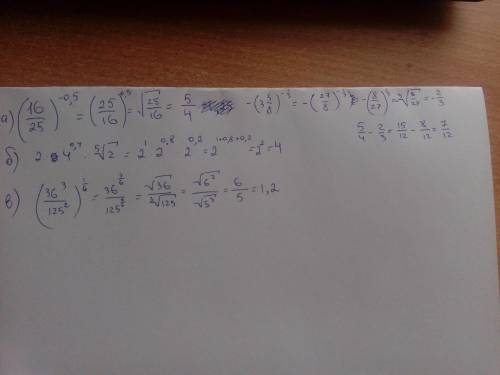 а) (16/25)^-0,5 = (25/16)^0,5 = √(25/16) = 5/4   -(3 3/8)^-1/3 = -(27/8)^-1/3 = -(8/27)^1/3 = -∛(8/27) = -2/3
5/4 - 2/3 = 15/12 - 8/12 = 7/12
б) 2 · 4^0,4 · ⁵√2 = 2^1 · 2^0,8 · 2^0,2 = 2^1+0,8+0,2 = 2² = 4
в) (36³/125²)^1/6 = 36^3/6/125^2/6 = √36/∛125 = √6²/√5³ = 6/5 = 1,2